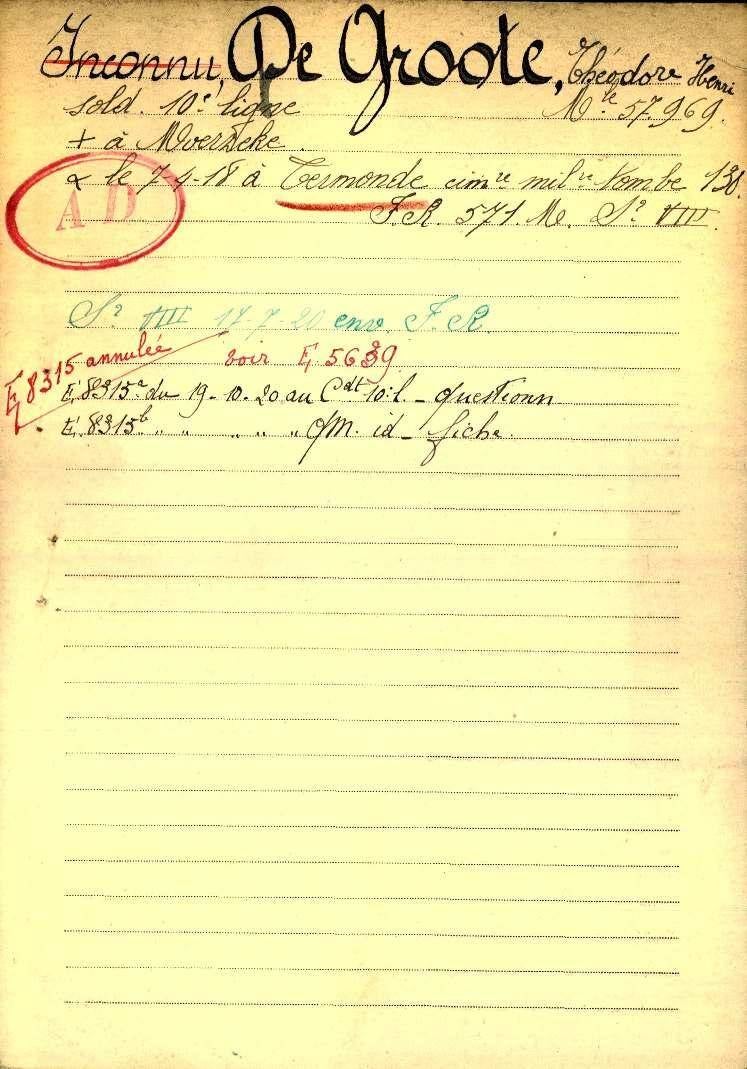 Inconnu, De Groote, Théodore Henri
sold. 10e ligne Mle 57.969.
+ à Moerzeke.
le 7-4-18 à Termonde cimre milre tombe 130.
A D
F.R. 571. Me. Son VIII.
Son VIII 17-7-20 env. F. R
E, 8315 annulée voir E, 5639
E, 8315a du 19-10-20 au Cdt 10:l. - questionn
E, 8315b " " " " " O/M. id - fiche.